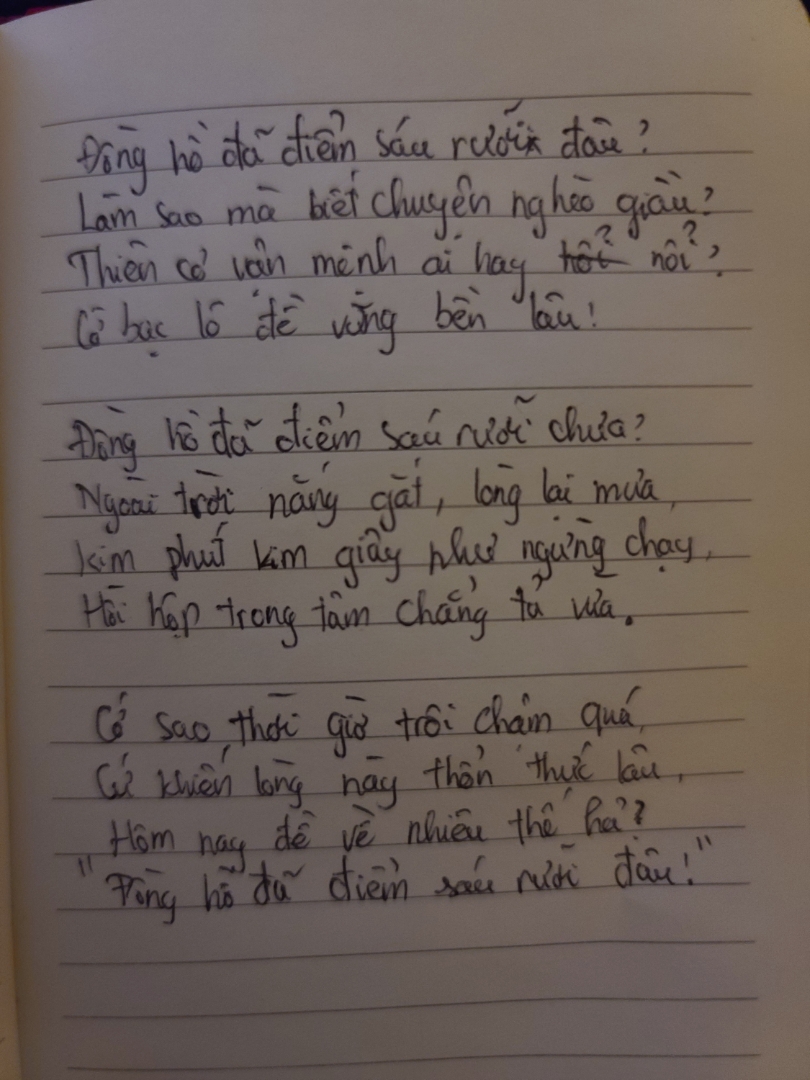 Đồng hồ đã điểm sáu rưỡi đâu?
Làm sao mà biết chuyện nghèo giàu?
Thiên cơ vận mệnh ai hay nổi?
Cờ bạc lô đề vững bền lâu!
Đồng hồ đã điểm sáu rưỡi chưa?
Ngoài trời nắng gắt, lòng lại mưa,
Kim phút kim giây như ngừng chạy,
Hồi hộp trong tâm chẳng tả vừa.
Cớ sao thời giờ trôi chậm quá,
Cứ khiến lòng này thổn thức lâu,
Hôm nay đề về nhiêu thế hả?
"Đồng hồ đã điểm sáu rưỡi đâu!"